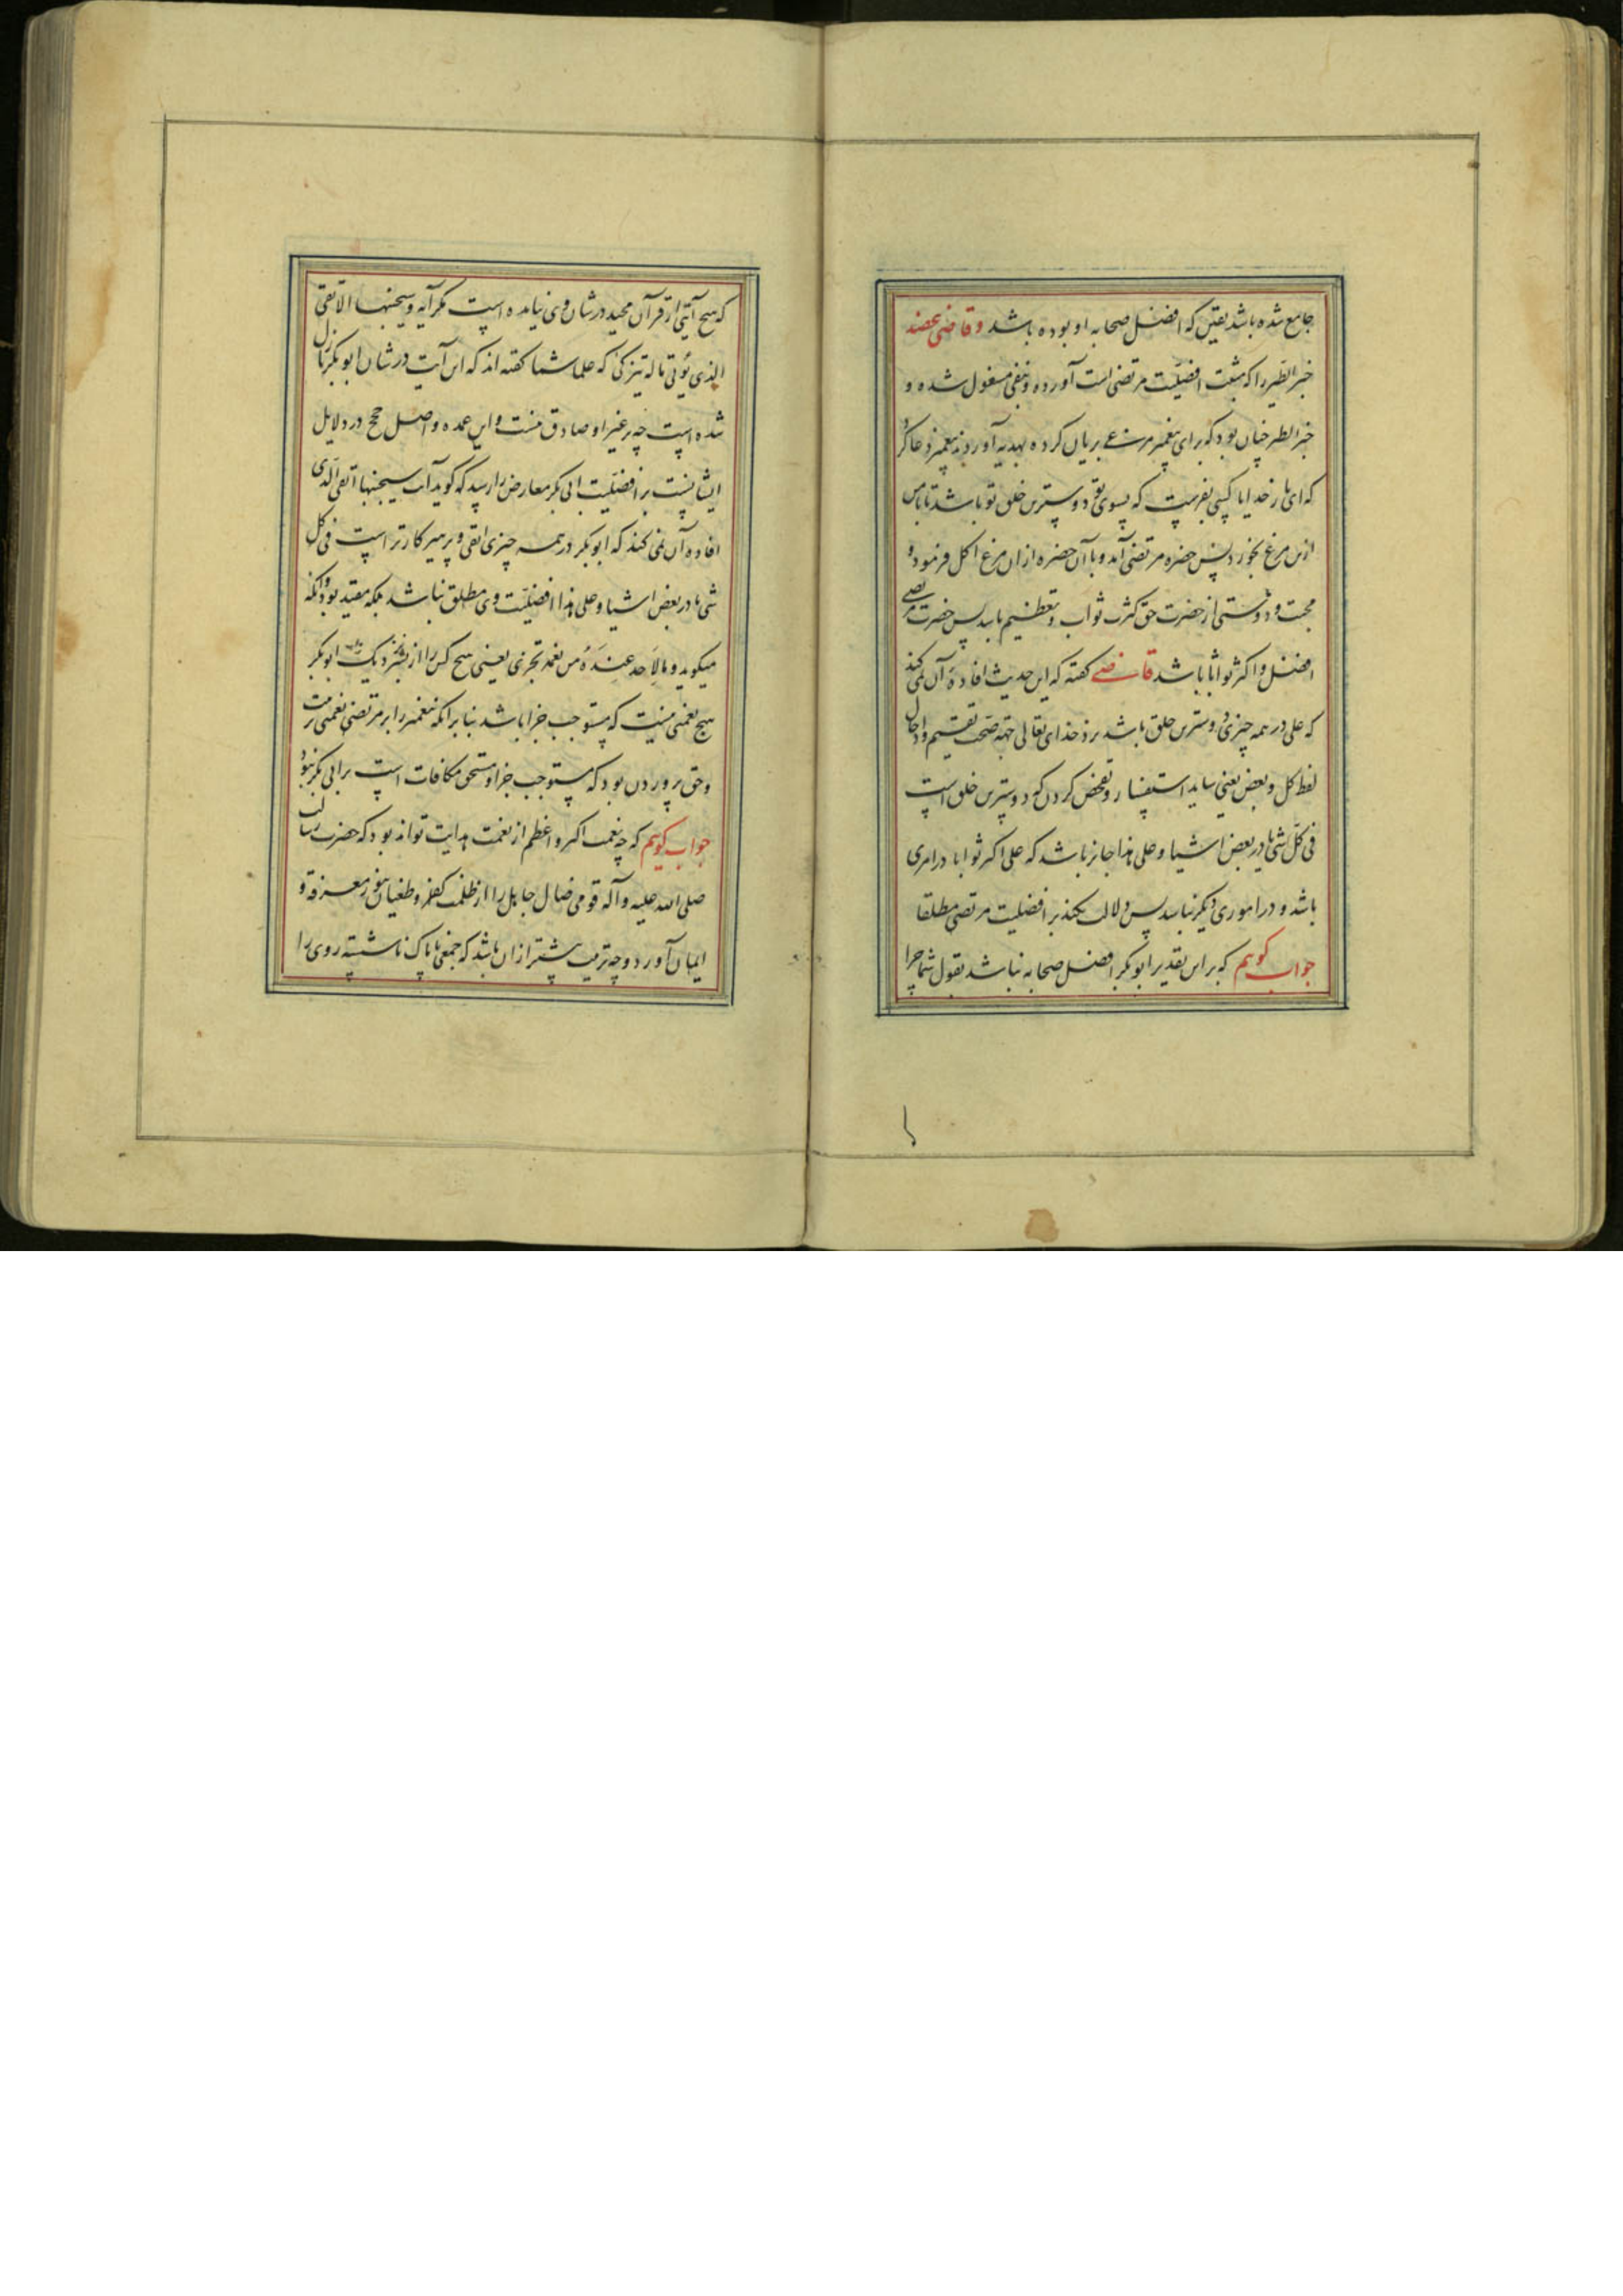 جامع شده باشد یقین که افضل صحابه او بوده باشد و قاضی عضد
خبر الطیر را که مثبت افضلیت مرتضی است آورده و بنفی مشغول شده و
خبر الطیر چنان بود که برای پیغمبر مرغی بریان کرده بهدیه آوردند پیغمبر دعا کرد
که ای بار خدایا کسی بفرست که بسوی تو دوسترین خلق تو باشد تا با من
ازین مرغ بخورد پس حضره مرتضی آمد و با آن حضره ازان مرغ اکل فرمود و
محبت و دوستی از حضرت حق کثرت ثواب و تعظیم باشد پس حضرت مرتضی
افضل و اکثر ثوابا باشد قاضی گفته که این حدیث افادهٔ آن نمی کند
که علی در همه چیزی دوسترین خلق باشد نزد خدای تعالی جهة صحت تقسیم و ادخال
لفظ کل و بعض یعنی شاید استفسار و تفحص کردن که دوسترین خلق است
فی کل شی یا در بعض اشیا و علی هذا جایز باشد که علی اکثر ثوابا در امری
باشد و در اموری دیگر نباشد پس دلالت نکند بر افضلیت مرتضی مطلقا
جواب گویم که بر این تقدیر ابوبکر افضل صحابه نباشد بقول شما چرا
که هیچ آیتی از قرآن مجید در شان وی نیامده است مگر آیه و سیجنبها الاتقی
الذی یؤتی ماله یتزکی که علما شما گفته اند که این آیت در شان ابوبکر نازل
شده است چه بر غیر او صادق نیست و این عمده و اصل حجج در دلایل
ایشانست بر افضلیت ابی بکر معارض را رسد که گوید آیت سیجنبها اتقی الذی
افاده آن نمی کند که ابوبکر در همه چیزی اتقی و پرهیزکارتر است فی کل
شی یا در بعض اشیا و علی هذا افضلیت وی مطلق نباشد بلکه مقید بود و آنکه
میگوید و ما لاحد عنده من نعمة تجزی یعنی هیچ کس را از بشر نزدیک ابوبکر
هیچ نعمتی نیست که مستوجب جزا باشد بنابر آنکه پیغمبر را بر مرتضی نعمتی تربیت
و حق پروردن بود که مستوجب جزا و مستحق مکافات است بر ابی بکر نبود
جواب گویم که چه نعمت اکبر و اعظم از نعمت هدایت تواند بود که حضرت رسالت
صلی الله علیه و آله قومی ضال جاهل را از ظلمت کفر و طغیان بنور معرفة و
ایمان آورد و چه تربیت بیشتر ازان باشد که جمعی ناپاک ناشسته روی را